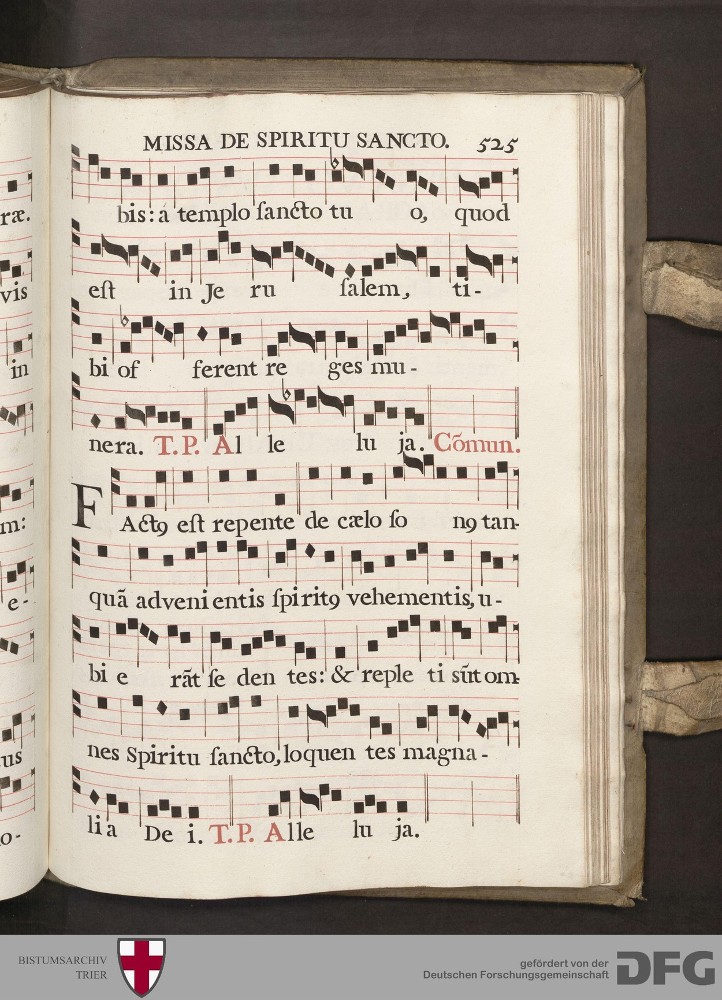 MISSA DE SPIRITU SANCTO. 525
ræ.
bis: a templo ſancto tu o, quod
vis
eſt in Je ru ſalem, ti-
in
bi of ferent re ges mu-
nera. T.P. Al le lu ja. Cõmun.
m:
FActꝯ eſt repente de cælo ſo nꝯ tan-
e-
quã adveni entis ſpiritꝯ vehementis, u-
bi e rãt ſe den tes: & reple ti sũt om-
tus
nes Spiritu ſancto, loquen tes magna-
o-
li a De i. T.P. Alle lu ja.
BISTUMSARCHIV
TRIER
gefördert von der
Deutschen Forschungsgemeinschaft
DFG